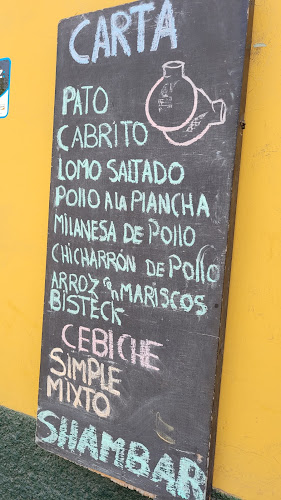 CARTA
PATO
CABRITO
LOMO SALTADO
POLLO A LA PLANCHA
MILANESA DE POLLO
CHICHARRÓN DE POLLO
ARROZ CON MARISCOS
BISTECK
CEBICHE
SIMPLE
MIXTO
SHAMBAR